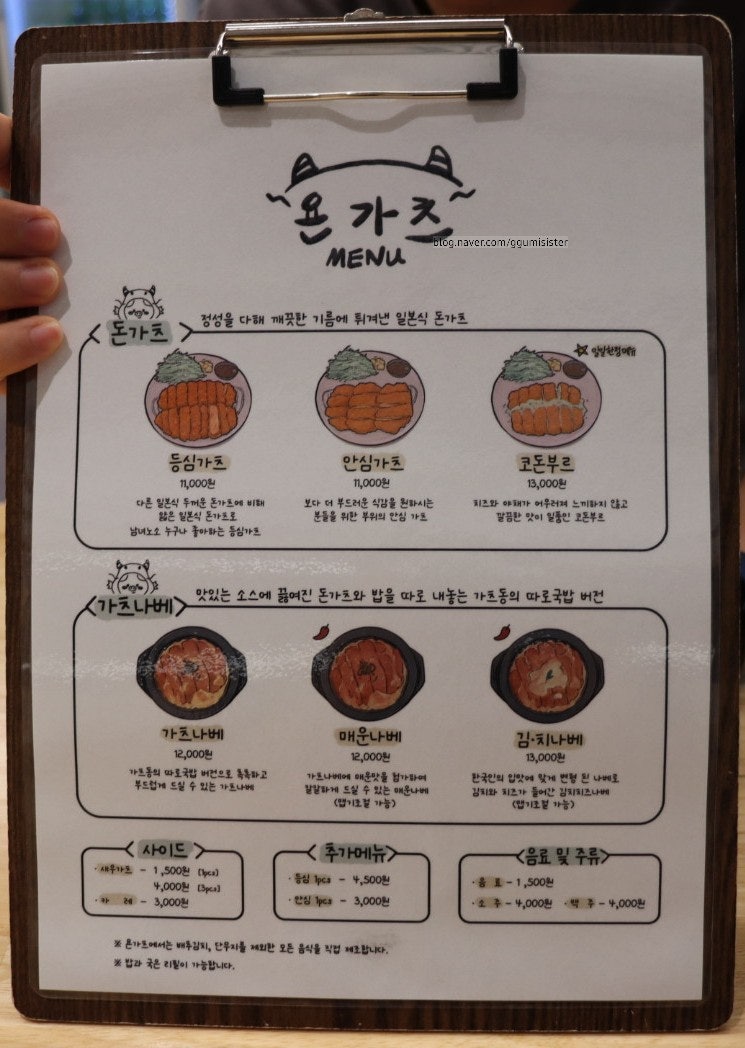 욘가츠
MENU
blog.naver.com/ggumisister
돈가츠
정성을 다해 깨끗한 기름에 튀겨낸 일본식 돈가츠
일일한정메뉴
등심가츠
11,000원
다른 일본식 두꺼운 돈가츠에 비해
얇은 일본식 돈가츠로
남녀노소 누구나 좋아하는 등심가츠
안심가츠
11,000원
보다 더 부드러운 식감을 원하시는
분들을 위한 부위의 안심 가츠
코돈부르
13,000원
치즈와 야채가 어우러져 느끼하지 않고
깔끔한 맛이 일품인 코돈부르
가츠나베
맛있는 소스에 끓여진 돈가츠와 밥을 따로 내놓는 가츠동의 따로국밥 버전
가츠나베
12,000원
가츠동의 따로국밥 버전으로 촉촉하고
부드럽게 드실 수 있는 가츠나베
매운나베
12,000원
가츠나베에 매운맛을 첨가하여
칼칼하게 드실 수 있는 매운나베
(맵기조절 가능)
김·치나베
13,000원
한국인의 입맛에 맞게 변형 된 나베로
김치와 치즈가 들어간 김치치즈나베
(맵기조절 가능)
사이드
· 새우가츠 - 1,500원 (1pcs)
4,000원 (3pcs)
· 카 레 - 3,000원
추가메뉴
· 등심 1pcs - 4,500원
· 안심 1pcs - 3,000원
음료 및 주류
· 음 료 - 1,500원
· 소 주 - 4,000원 · 맥 주 - 4,000원
※ 욘가츠에서는 배추김치, 단무지를 제외한 모든 음식을 직접 제조합니다.
※ 밥과 국은 리필이 가능합니다.